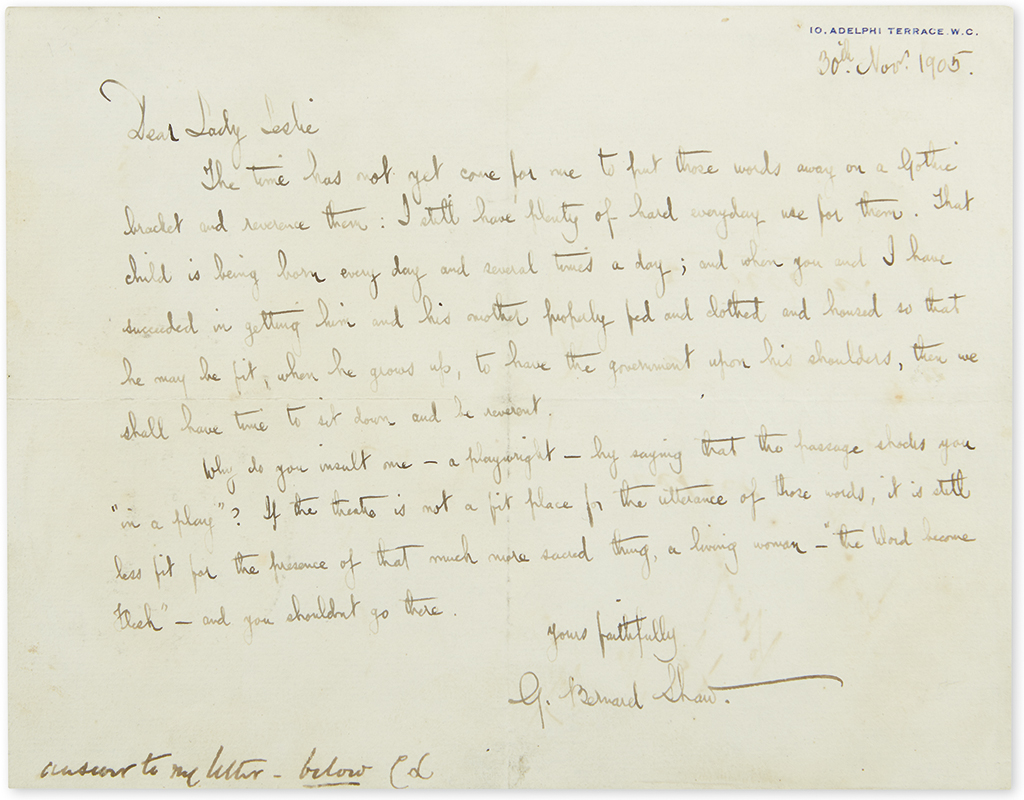 10, ADELPHI TERRACE. W.C.
30th. Novr. 1905.
Dear Lady Leslie
The time has not yet come for me to put those words away on a Gothic
bracket and reverence them : I still have plenty of hard everyday use for them. That
child is being born every day and several times a day ; and when you and I have
succeeded in getting him and his mother properly fed and clothed and housed so that
he may be fit, when he grows up, to have the government upon his shoulders, then we
shall have time to sit down and be reverent.
Why do you insult me — a playwright — by saying that the passage shocks you
"in a play"? If the theatre is not a fit place for the utterance of those words, it is still
less fit for the presence of that much more sacred thing, a living woman — "the Word become
Flesh" — and you shouldnt go there.
Yours faithfully
G. Bernard Shaw.
answer to my letter - below CL